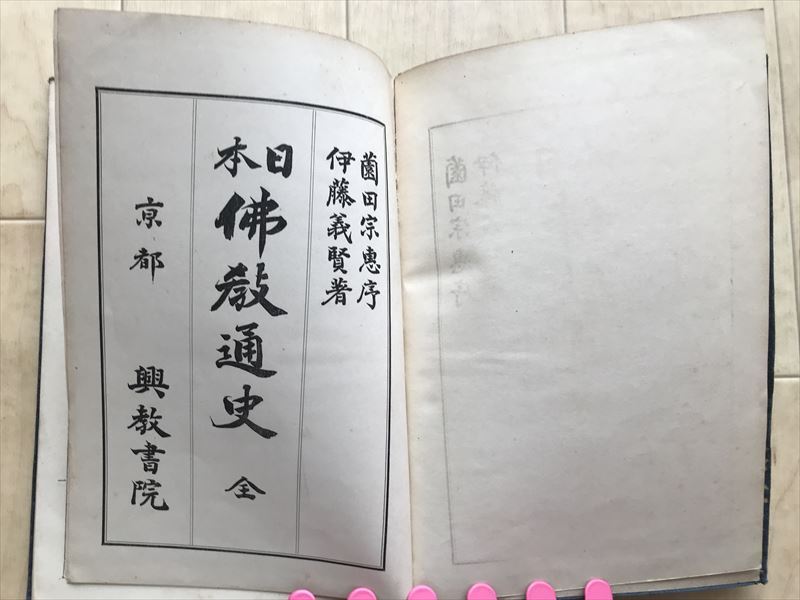 薗田宗惠序
伊藤義賢著
日本
佛教通史 全
京都 興教書院